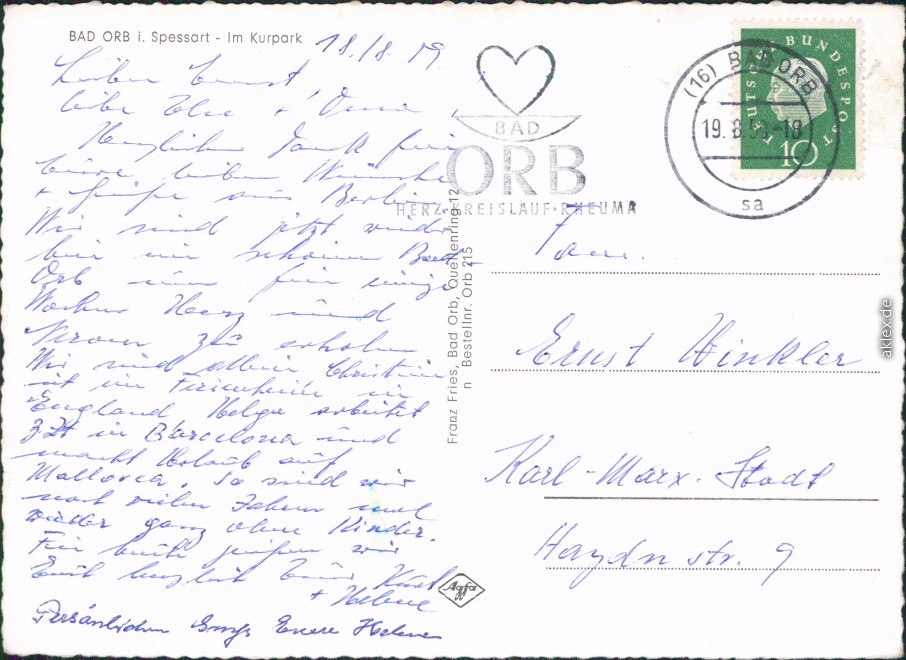 BAD ORB i. Spessart - Im Kurpark
18./8. 59
Lieber Ernst
liebe Else +
Herzlichen Dank für
Eure lieben Wünsche
+ Grüße aus Berlin.
Wir sind jetzt wieder
hier im schönen Bad
Orb um für einige
Wochen Herz und
Nerven zu erholen
Wir sind allein Christine
ist im Ferienheim in
England Helga arbeitet
z. Zt in Barcelona und
macht Urlaub auf
Mallorca. So sind wir
nach vielen Jahren mal
wieder ganz ohne Kinder.
Für heute grüßen wir
Euch herzlich Euer Karl
+ Helene
Persönlichen Gruß Eure Helene
Franz Fries, Bad Orb, Quellenring 12
n Bestellnr. Orb 215
Agfa
BAD
ORB
HERZ·KREISLAUF·RHEUMA
(16) BAD ORB
19. 8. 59-18
sa
DEUTSCHE BUNDESPOST
10
Fam.
Ernst Winkler
Karl-Marx-Stadt
Haydnstr. 9
aklex.de